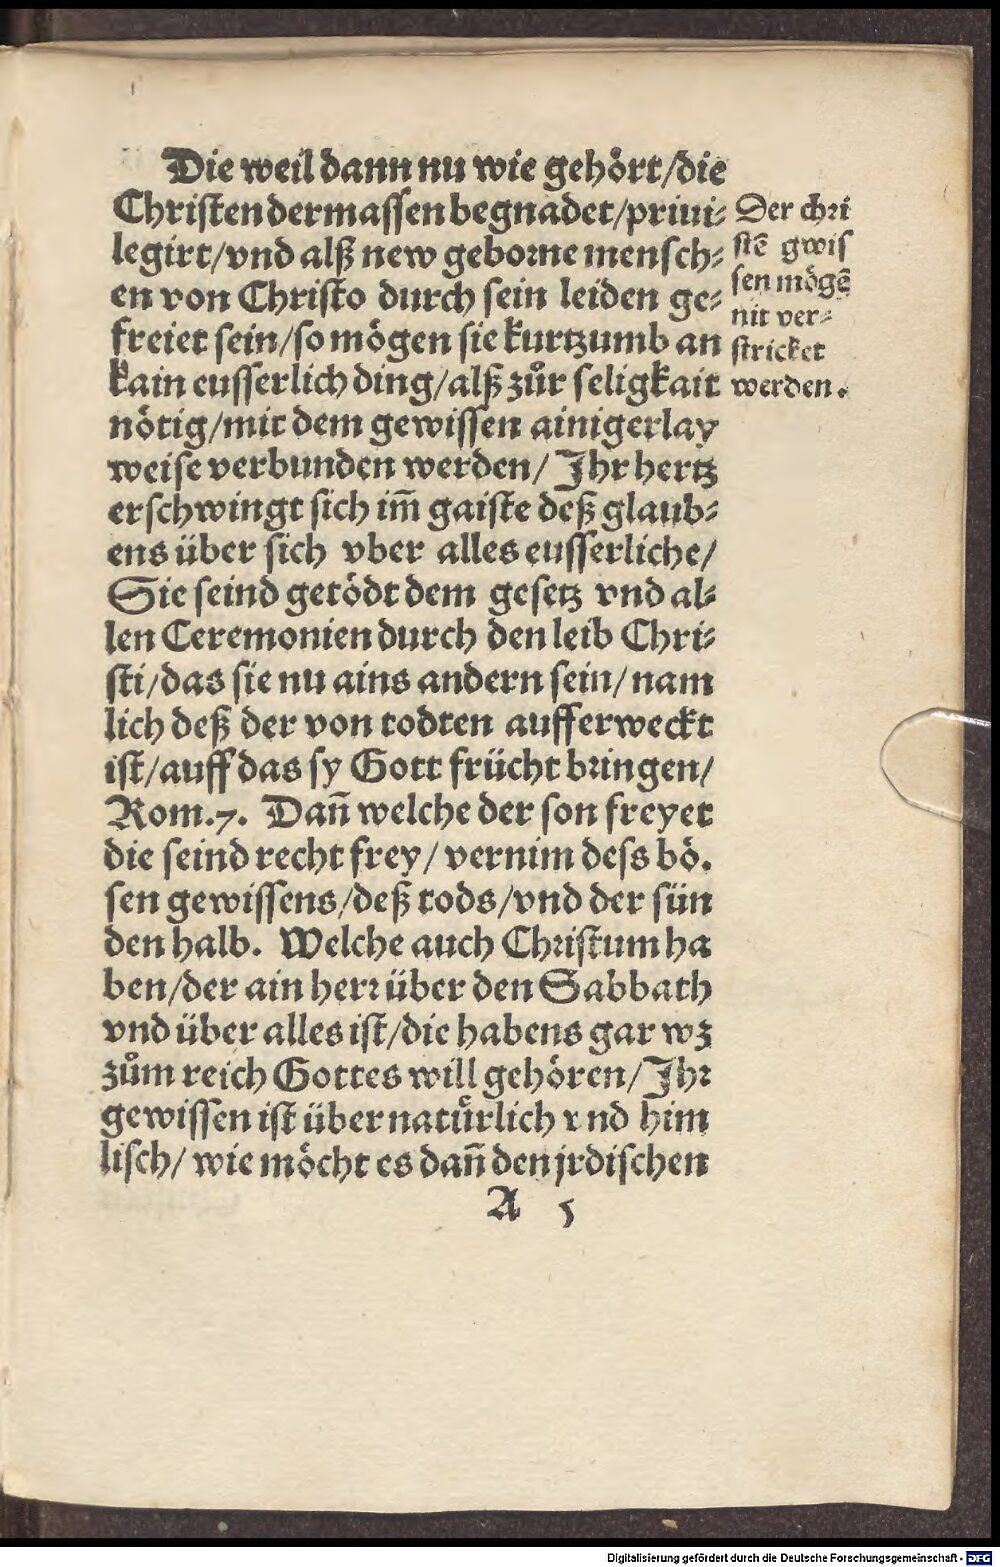 Die weil dann nu wie gehört/die
Christen dermassen begnadet/priui⸗
legirt/vnd alß new geborne mensch⸗
en von Christo durch sein leiden ge⸗
freiet sein/so mögen sie kurtzumb an
kain eusserlich ding/alß zůr seligkait
nötig/mit dem gewissen ainigerlay
weise verbunden werden/ Ihr hertz
erschwingt sich im̄ gaiste deß glaub⸗
ens über sich vber alles eusserliche/
Sie seind getödt dem gesetz vnd al⸗
len Ceremonien durch den leib Chri⸗
sti/das sie nu ains andern sein/nam
lich deß der von todten aufferweckt
ist/auff das sy Gott frücht bringen/
Rom.7. Dan̄ welche der son freyet
die seind recht frey/vernim dess bö.
sen gewissens/deß tods/vnd der sün
den halb. Welche auch Christum ha
ben/der ain herr über den Sabbath
vnd über alles ist/die habens gar wz
zům reich Gottes will gehören/Ihr
gewissen ist übernatürlich vnd him
lisch/ wie möcht es dan̄ den jrdischen
A 5
Der chri
stē gwis
sen mögē
nit ver⸗
stricket
werden.
Digitalisierung gefördert durch die Deutsche Forschungsgemeinschaft - DFG